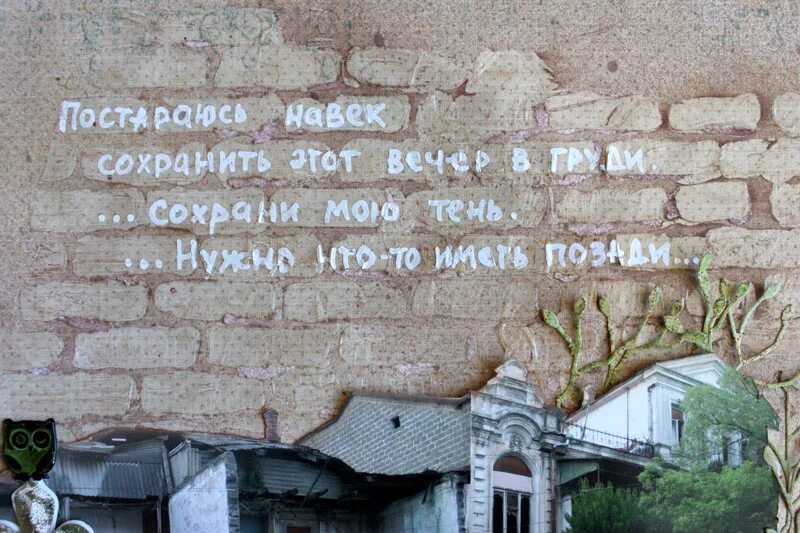 Постараюсь навек
сохранить этот вечер в груди.
...Сохрани мою тень.
...Нужно что-то иметь позади...